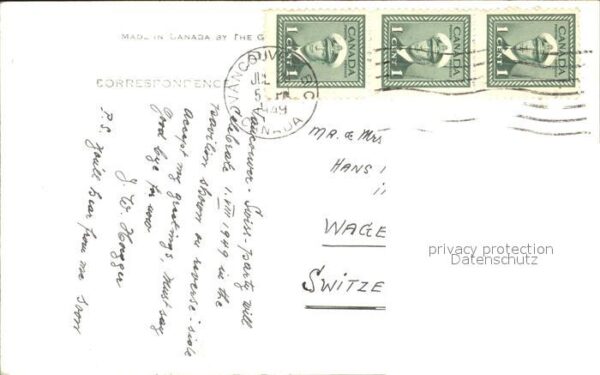 MADE IN CANADA BY THE G
CANADA
1 CENT 1
CANADA
1 CENT 1
CANADA
1 CENT 1
VANCOUVER B.C.
JUL
5 PM
1949
CANADA
CORRESPONDENCE
Vancouver - Swiss-party will
celebrate 1. VIII 1949 in the
Pavilion shown on reverse-side
accept my greetings, must say
Good bye for now
J. W. Hugger
P.S. you'll hear from me soon
MR. & MRS
HANS
WAGE
SWITZE
privacy protection
Datenschutz